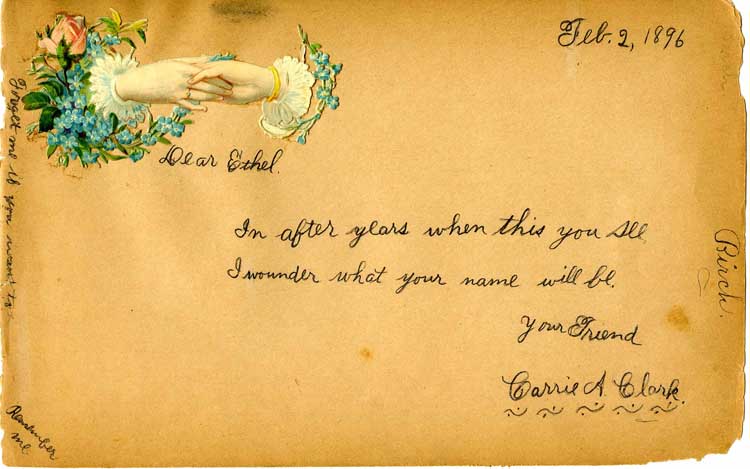 Feb. 2, 1896
Dear Ethel.
In after years when this you see
I wounder what your name will be.
Your Friend
Carrie A. Clark.
Forget me if you want to
Remember
me
Birch.